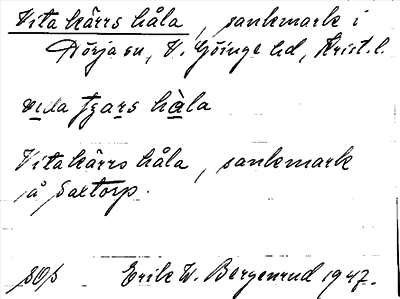 Vita kärrs håla, sankmark i
Nörja sn, V. Göinge hd, Krist. l.
vita kärrs håla
Vitakärrs håla, sankmark
på Saxtorp.
Erik W. Bergenrud 1947.